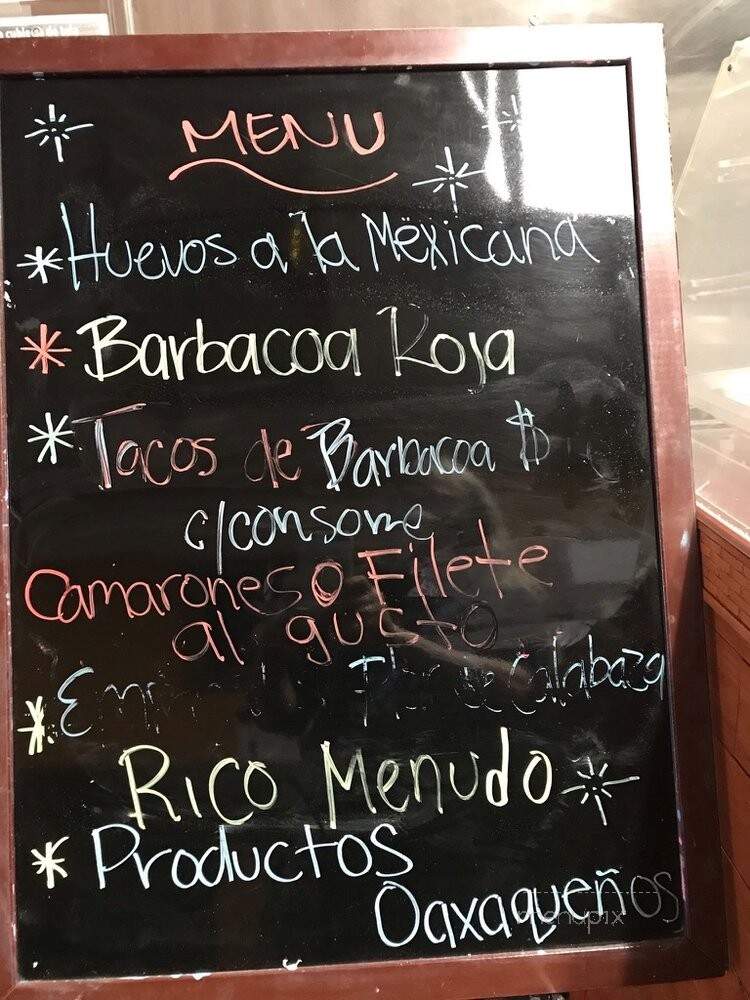 MENU
* Huevos a la Mexicana
* Barbacoa Roja
* Tacos de Barbacoa $
c/consome
Camarones o Filete
al gusto
* Flor de Calabaza
Rico Menudo
* Productos
Oaxaqueños
menupix